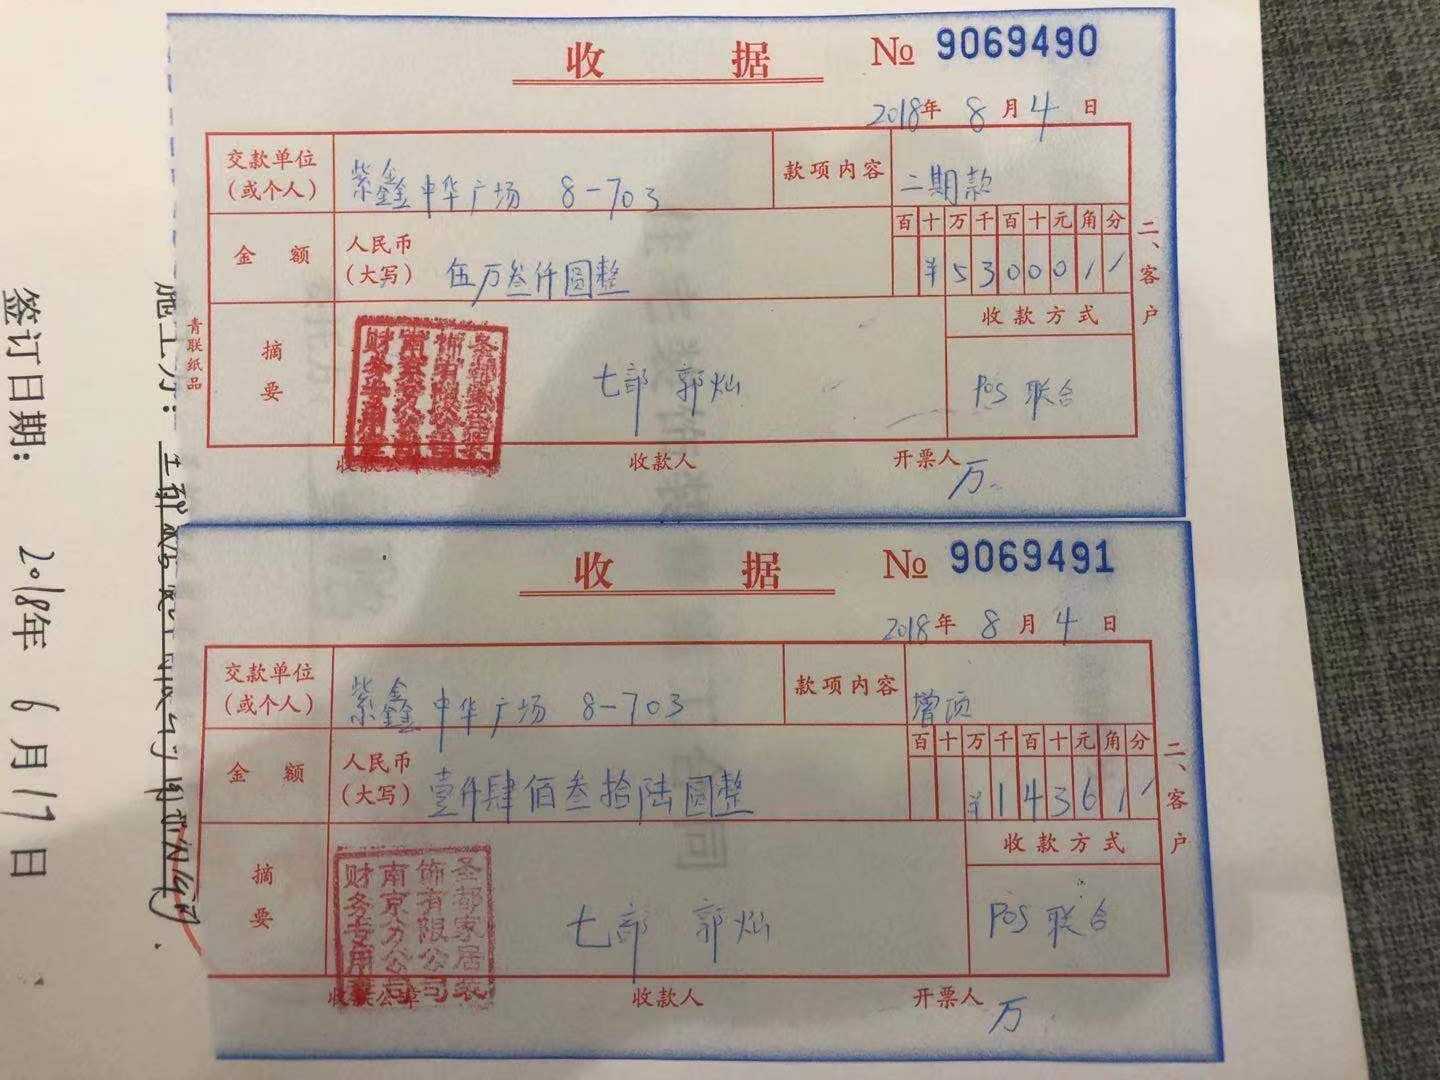 收 据 № 9069490
2018年 8月4日
交款单位
(或个人)
紫鑫中华广场 8-703
款项内容
二期款
金 额
人民币
(大写)
伍万叁仟圆整
百十万千百十元角分
¥53000
摘
要
七部 郭灿
收款方式
POS 联合
收款人
开票人 万
二、客户
青联纸品
收 据 № 9069491
2018年 8月4日
交款单位
(或个人)
紫鑫中华广场 8-703
款项内容
增项
金 额
人民币
(大写)
壹仟肆佰叁拾陆圆整
百十万千百十元角分
¥1436
摘
要
圣都家居装
饰有限公司
南京分公司
财务专用章
七部 郭灿
收款方式
POS 联合
收款公章
收款人
开票人 万
二、客户
施工方:
签订日期: 2018年 6月17日